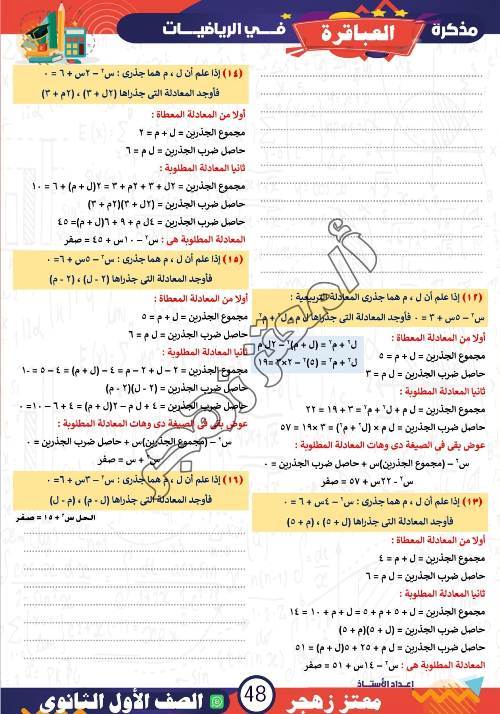 مذكرة العباقرة في الرياضيات
(١٢) إذا علم أن ل ، م هما جذرى المعادلة التربيعية :
س٢ – ٥س + ٣ = ٠ فأوجد المعادلة التى جذراها ل م ، ل٢ + م٢
أولا من المعادلة المعطاة :
مجموع الجذرين = ل + م = ٥
حاصل ضرب الجذرين = ل م = ٣
ل٢ + م٢ = (ل + م)٢ – ٢ل م
ل٢ + م٢ = (٥)٢ – ٢×٣ = ١٩
ثانيا المعادلة المطلوبة :
مجموع الجذرين = ل م + ل٢ + م٢ = ٣ + ١٩ = ٢٢
حاصل ضرب الجذرين = ل م × (ل٢ + م٢) = ٣ × ١٩ = ٥٧
عوض بقى فى الصيغة دى وهات المعادلة المطلوبة :
س٢ – (مجموع الجذرين)س + حاصل ضرب الجذرين = ٠
س٢ - ٢٢س + ٥٧ = صفر
(١٣) إذا علم أن ل ، م هما جذرى : س٢ – ٤س + ٦ = ٠
فأوجد المعادلة التى جذراها (ل + ٥) ، (م + ٥)
أولا من المعادلة المعطاة :
مجموع الجذرين = ل + م = ٤
حاصل ضرب الجذرين = ل م = ٦
ثانيا المعادلة المطلوبة :
مجموع الجذرين = ل + ٥ + م + ٥ = ل + م + ١٠ = ١٤
حاصل ضرب الجذرين = (ل + ٥)(م + ٥)
حاصل ضرب الجذرين = ل م + ٢٥ + ٥(ل + م) = ٥١
المعادلة المطلوبة هى : س٢ – ١٤س + ٥١ = صفر
(١٤) إذا علم أن ل ، م هما جذرى : س٢ – ٢س + ٦ = ٠
فأوجد المعادلة التى جذراها (٢ل + ٣) ، (٢م + ٣)
أولا من المعادلة المعطاة :
مجموع الجذرين = ل + م = ٢
حاصل ضرب الجذرين = ل م = ٦
ثانيا المعادلة المطلوبة :
مجموع الجذرين = ٢ل + ٣ + ٢م + ٣ = ٢(ل + م) + ٦ = ١٠
حاصل ضرب الجذرين = (٢ل + ٣)(٢م + ٣)
حاصل ضرب الجذرين = ٤ل م + ٩ + ٦(ل + م) = ٤٥
المعادلة المطلوبة هى : س٢ – ١٠س + ٤٥ = صفر
(١٥) إذا علم أن ل ، م هما جذرى : س٢ – ٥س + ٦ = ٠
فأوجد المعادلة التى جذراها (٢ - ل) ، (٢ - م)
أولا من المعادلة المعطاة :
مجموع الجذرين = ل + م = ٥
حاصل ضرب الجذرين = ل م = ٦
ثانيا المعادلة المطلوبة :
مجموع الجذرين = ٢ – ل + ٢ – م = ٤ – (ل + م) = ٤ – ٥ = ١٠
حاصل ضرب الجذرين = (٢ - ل)(٢ - م)
حاصل ضرب الجذرين = ٤ + ل م – ٢(ل + م) = ٤ + ٦ – ١٠ = ٠
عوض بقى فى الصيغة دى وهات المعادلة المطلوبة :
س٢ – (مجموع الجذرين)س + حاصل ضرب الجذرين = ٠
س٢ + س = صفر
(١٦) إذا علم أن ل ، م هما جذرى : س٢ – ٣س + ٦ = ٠
فأوجد المعادلة التى جذراها (ل - م) ، (م - ل)
الحل س٢ + ١٥ = صفر
إعداد الأستاذ
معتز زهجر
48
الصف الأول الثانوى